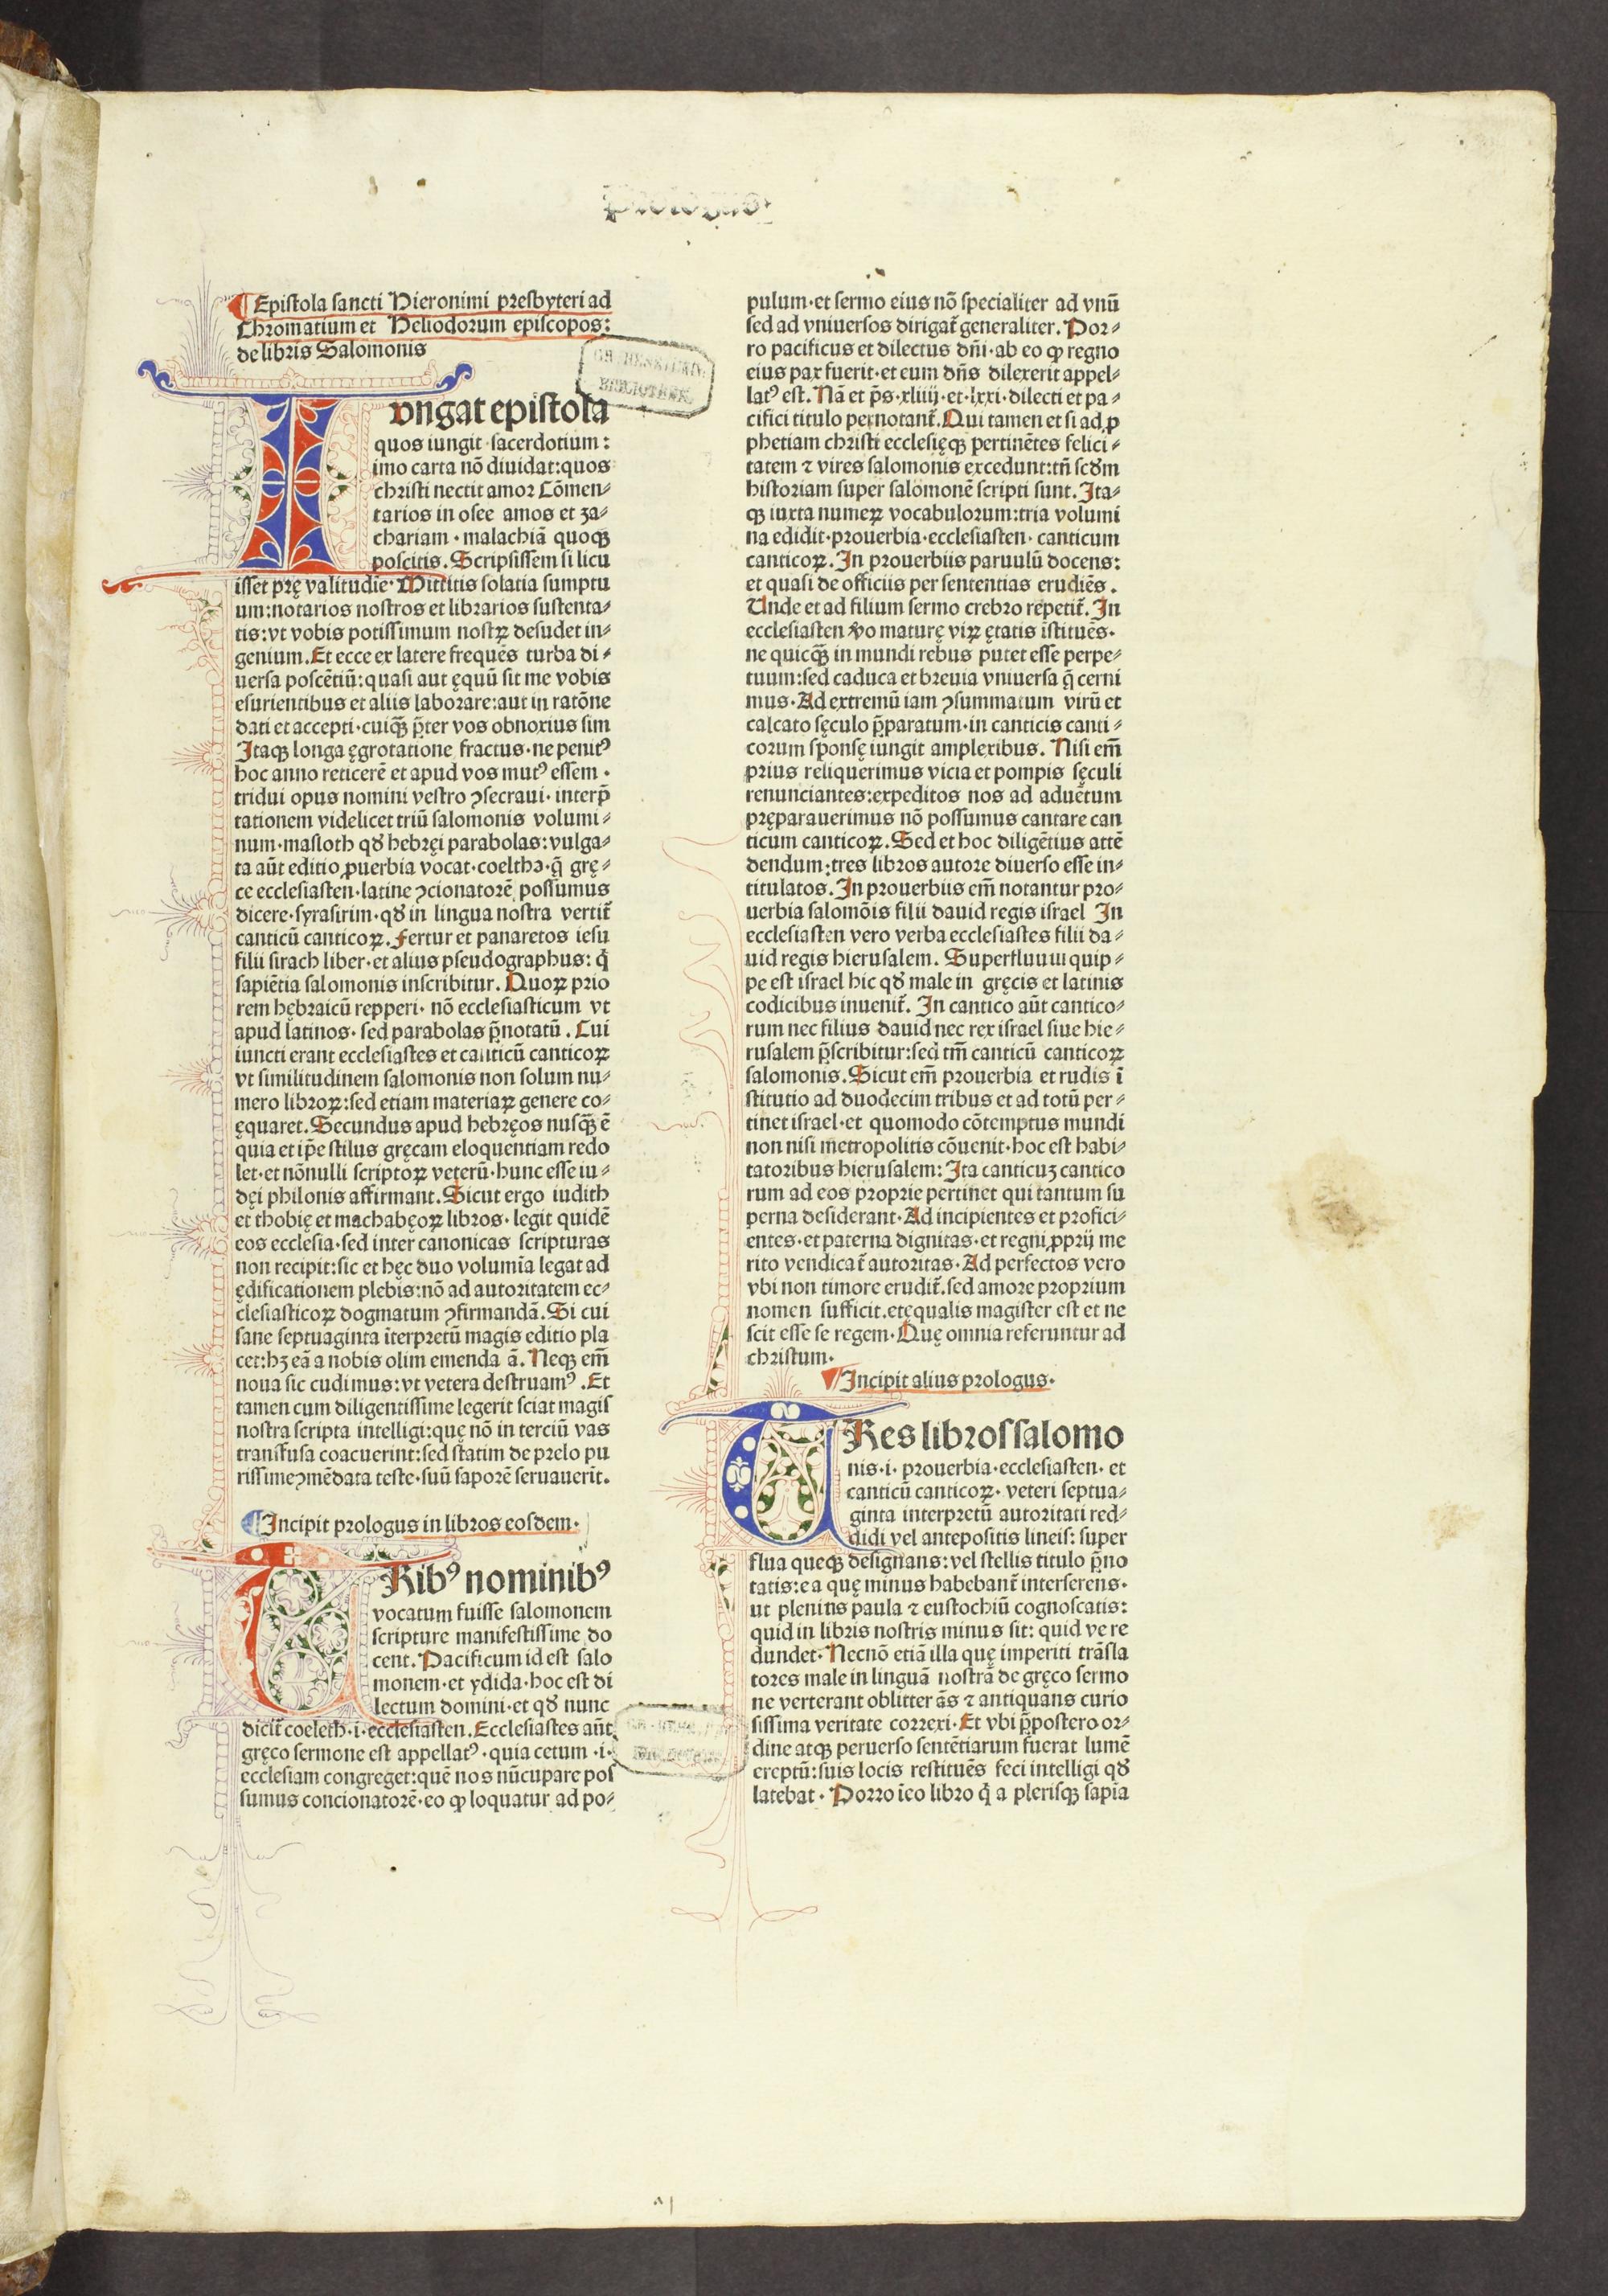 Prologus
¶Epistola sancti Hieronimi presbyteri ad
Chromatium et Heliodorum episcopos:
de libris Salomonis
Iungat epistola
quos iungit sacerdotium:
imo carta nō diuidat:quos
christi nectit amor Cōmen⸗
tarios in osee amos et za⸗
chariam · malachiā quoqꝫ
poscitis. Scripsissem si licu
isset prę valitudīe· Mittitis solatia sumptu
um:notarios nostros et librarios sustenta⸗
tis:vt vobis potissimum nostꝝ desudet in⸗
genium. Et ecce ex latere frequēs turba di⸗
uersa poscētiū:quasi aut ęquū sit me vobis
esurientibus et aliis laborare:aut in ratōne
dati et accepti·cuiqꝫ p̄ter vos obnoxius sim
Itaqꝫ longa ęgrotatione fractus·ne penitꝰ
hoc anno reticerē et apud vos mutꝰ essem·
tridui opus nomini vestro ꝯsecraui·interp̄
tationem videlicet triū salomonis volumi⸗
num·masloth qd̄ hebręi parabolas:vulga⸗
ta aūt editio ꝓuerbia vocat·coelthꝫ·q̄ grę⸗
ce ecclesiasten·latine ꝯcionatorē possumus
dicere·syrasirim·qd̄ in lingua nostra vertit᷑
canticū canticoꝝ. Fertur et panaretos iesu
filii sirach liber·et alius pseudographus: q̇
sapiētia salomonis inscribitur. Quoꝝ prio
rem hębraicū repperi· nō ecclesiasticum vt
apud latinos·sed parabolas p̄notatū. Cui
iuncti erant ecclesiastes et canticū canticoꝝ
vt similitudinem salomonis non solum nu⸗
mero libroꝝ:sed etiam materiaꝝ genere co⸗
ęquaret. Secundus apud hebręos nusqꝫ ē
quia et ip̄e stilus gręcam eloquentiam redo
let·et nōnulli scriptoꝝ veterū·hunc esse iu⸗
dęi philonis affirmant. Sicut ergo iudith
et thobię et machabęoꝝ libros·legit quidē
eos ecclesia·sed inter canonicas scripturas
non recipit:sic et hęc duo volumīa legat ad
ędificationem plebis:nō ad autoritatem ec⸗
clesiasticoꝝ dogmatum ꝯfirmandā. Si cui
sane septuaginta īterpretū magis editio pla
cet:hꝫ eā a nobis olim emenda ā. Neqꝫ em̄
noua sic cudimus:vt vetera destruamꝰ. Et
tamen cum diligentissime legerit sciat magis
nostra scripta intelligi:quę nō in terciū vas
transfusa coacuerint:sed statim de prelo pu
rissimeꝯmēdata teste·suū saporē seruauerīt.
Incipit prologus in libros eosdem·
TRibꝰ nominibꝰ
vocatum fuisse salomonem
scripture manifestissime do
cent. Pacificum id est salo
monem·et ydida·hoc est di
lectum domini·et qd̄ nunc
dicit᷑ coeleth·i·ecclesiasten. Ecclesiastes aūt
gręco sermone est appellatꝰ·quia cetum ·i·
ecclesiam congreget:quē nos nūcupare pos
sumus concionatorē·eo ꝙ loquatur ad po⸗
pulum·et sermo eius nō specialiter ad vnū
sed ad vniuersos dirigat᷑ generaliter. Por⸗
ro pacificus et dilectus dn̄i·ab eo ꝙ regno
eius pax fuerit·et eum dn̄s dilexerit appel⸗
latꝰ est. Nā et p̄s·xliiij·et·lxxi·dilecti et pa⸗
cifici titulo pernotant᷑. Qui tamen et si ad ꝓ
phetiam christi ecclesięqꝫ pertinētes felici⸗
tatem ⁊ vires salomonis excedunt:tn̄ scd̄m
historiam super salomonē scripti sunt. Ita⸗
qꝫ iuxta numeꝝ vocabulorum:tria volumi
na edidit·prouerbia·ecclesiasten· canticum
canticoꝝ. In prouerbiis paruulū docens:
et quasi de officiis per sententias erudiēs.
Unde et ad filium sermo crebro repetit᷑. In
ecclesiasten v̄o maturę viꝝ ętatis īstituēs·
ne quicqꝫ in mundi rebus putet esse perpe⸗
tuum:sed caduca et breuia vniuersa q̄ cerni
mus· Ad extremū iam ꝯsummatum virū et
calcato sęculo p̄paratum·in canticis canti⸗
corum sponsę iungit amplexibus. Nisi em̄
prius reliquerimus vicia et pompis sęculi
renunciantes:expeditos nos ad aduētum
pręparauerimus nō possumus cantare can
ticum canticoꝝ. Sed et hoc diligētius attē
dendum:tres libros autore diuerso esse in⸗
titulatos. In prouerbiis em̄ notantur pro⸗
uerbia salomōis filii dauid regis israel In
ecclesiasten vero verba ecclesiastes filii da⸗
uid regis hierusalem. Superfluum quip⸗
pe est israel hic qd̄ male in gręcis et latinis
codicibus inuenit᷑. In cantico aūt cantico⸗
rum nec filius dauid nec rex israel siue hie⸗
rusalem p̄scribitur:sed tm̄ canticū canticoꝝ
salomonis. Sicut em̄ prouerbia et rudis ī
stitutio ad duodecim tribus et ad totū per⸗
tinet israel·et quomodo cōtemptus mundi
non nisi metropolitis cōuenit·hoc est habi⸗
tatoribus hierusalem: Ita canticuꝫ cantico
rum ad eos proprie pertinet qui tantum su
perna desiderant· Ad incipientes et profici⸗
entes·et paterna dignitas·et regni ꝓprij me
rito vendicat᷑ autoritas· Ad perfectos vero
vbi non timore erudit᷑.sed amore proprium
nomen sufficit.etęqualis magister est et ne
scit esse se regem· Quę omnia referuntur ad
christum·
¶Incipit alius prologus·
TRes libros salomo
nis·i· prouerbia·ecclesiasten· et
canticū canticoꝝ· veteri septua⸗
ginta interpretū autoritati red⸗
didi vel antepositis lineis: super
flua queqꝫ designans:vel stellis titulo p̄no
tatis:ea quę minus habebant᷑ interserens·
ut plenius paula ⁊ eustochiū cognoscatis:
quid in libris nostris minus sit: quid ve re
dundet· Necnō etiā illa quę imperiti trāsla
tores male in linguā nostrā de gręco sermo
ne verterant oblitter ās ⁊ antiquans curio
sissima veritate correxi· Et vbi p̄postero or⸗
dine atqꝫ peruerso sentētiarum fuerat lumē
ereptū:suis locis restituēs feci intelligi qd̄
latebat· Porro īeo libro q̇ a plerisqꝫ sapīa